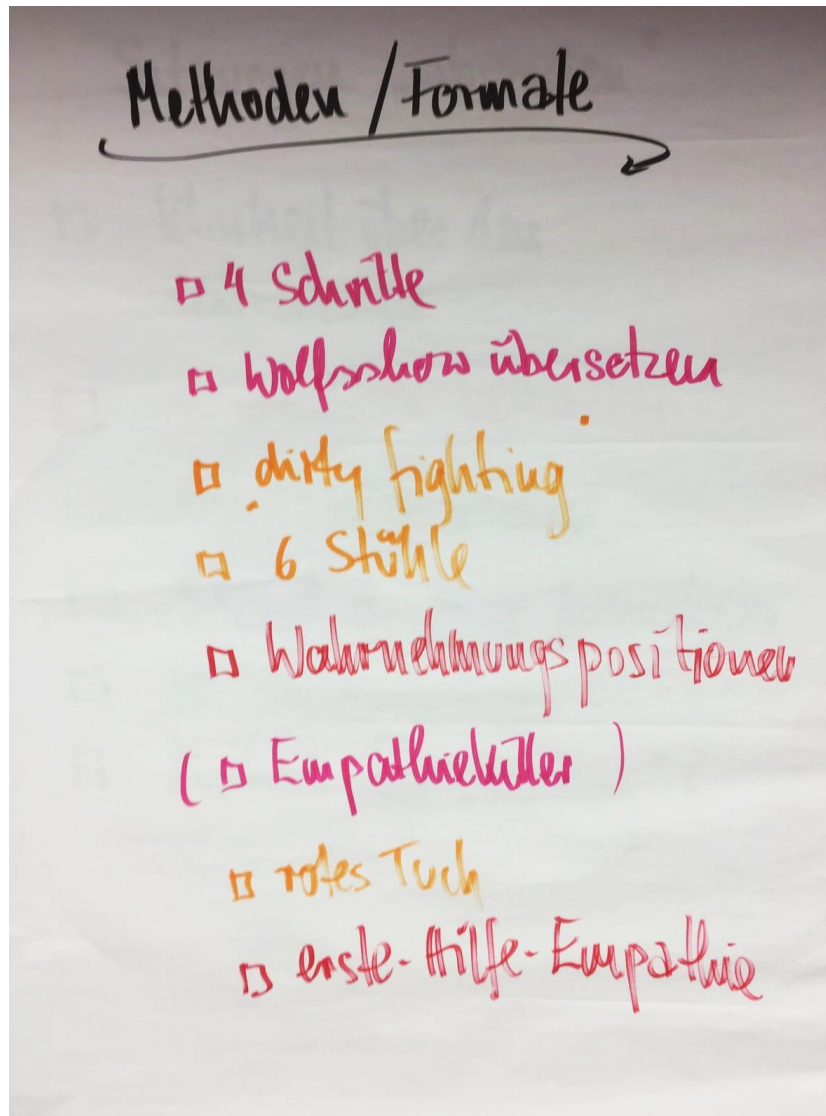 Methoden / Formate
4 Schritte
Wolfsshow übersetzen
dirty fighting
6 Stühle
Wahrnehmungspositionen
( Empathiekiller )
rotes Tuch
erste-Hilfe-Empathie